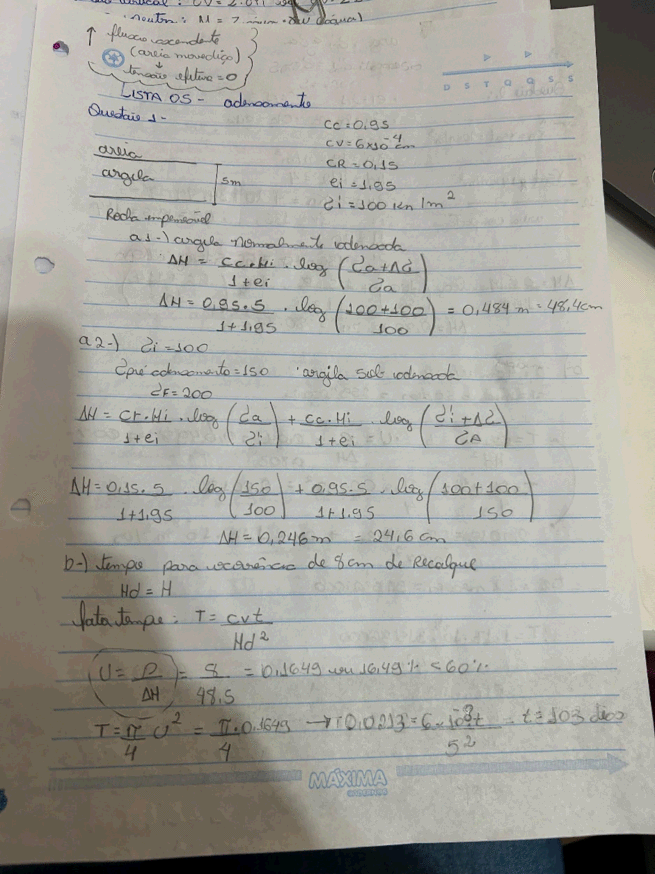 neutra: M = 7
↑ fluxo ascendente
(areia movediça)
↓
tensão efetiva = 0
D S T Q Q S S
LISTA 05 - adensamento
Questão 1-
Cc = 0,95
CV = 6x10⁻⁴ cm
CR = 0,15
ei = 1,95
σi = 100 kn/m²
areia
argila
5m
Rocha impermeável
a1-) argila normalmente adensada
ΔH = Cc.Hi/1+ei . log (σa+Δσ/σa)
ΔH = 0,95.5/1+1,95 . log (100+100/100) = 0,484 m = 48,4cm
a2-) σi = 100
σpré adensamento = 150 argila sob adensada
σF = 200
ΔH = Cr.Hi/1+ei . log (σa/σi) + Cc.Hi/1+ei . log (σi+Δσ/σA)
ΔH = 0,15.5/1+1,95 . log (150/100) + 0,95.5/1+1,95 . log (100+100/150)
ΔH = 0,246 m = 24,6 cm
b-) tempo para ocorrência de 8cm de Recalque
Hd = H
fator tempo: T = cvt/Hd²
U = ρ/ΔH = 8/48,5 = 0,1649 ou 16,49% < 60%
T = π/4 U² = π.0,1649/4 → 0,0213 = t/5² t = 103 dias
MÁXIMA